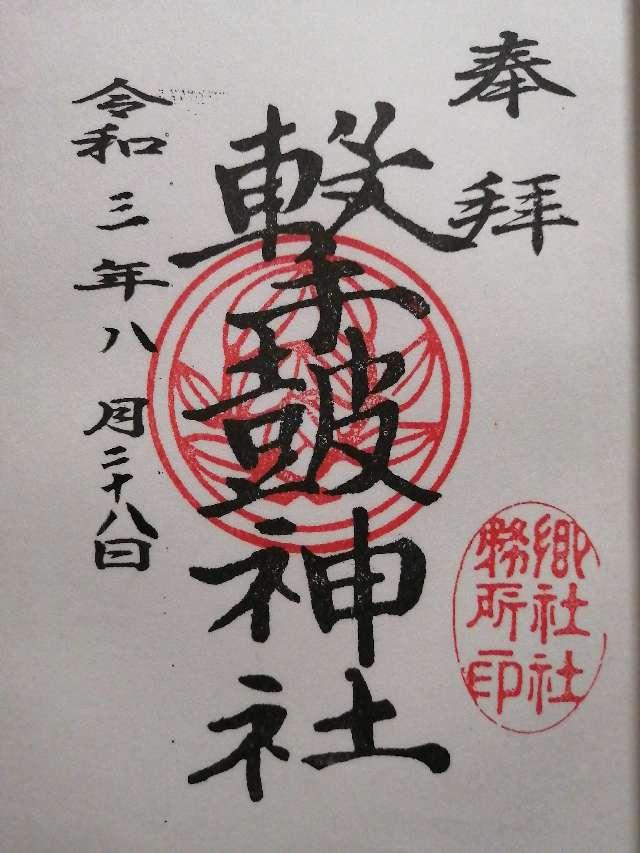 奉拝
撃皷神社
令和三年八月二十八日
郷社社
務所印